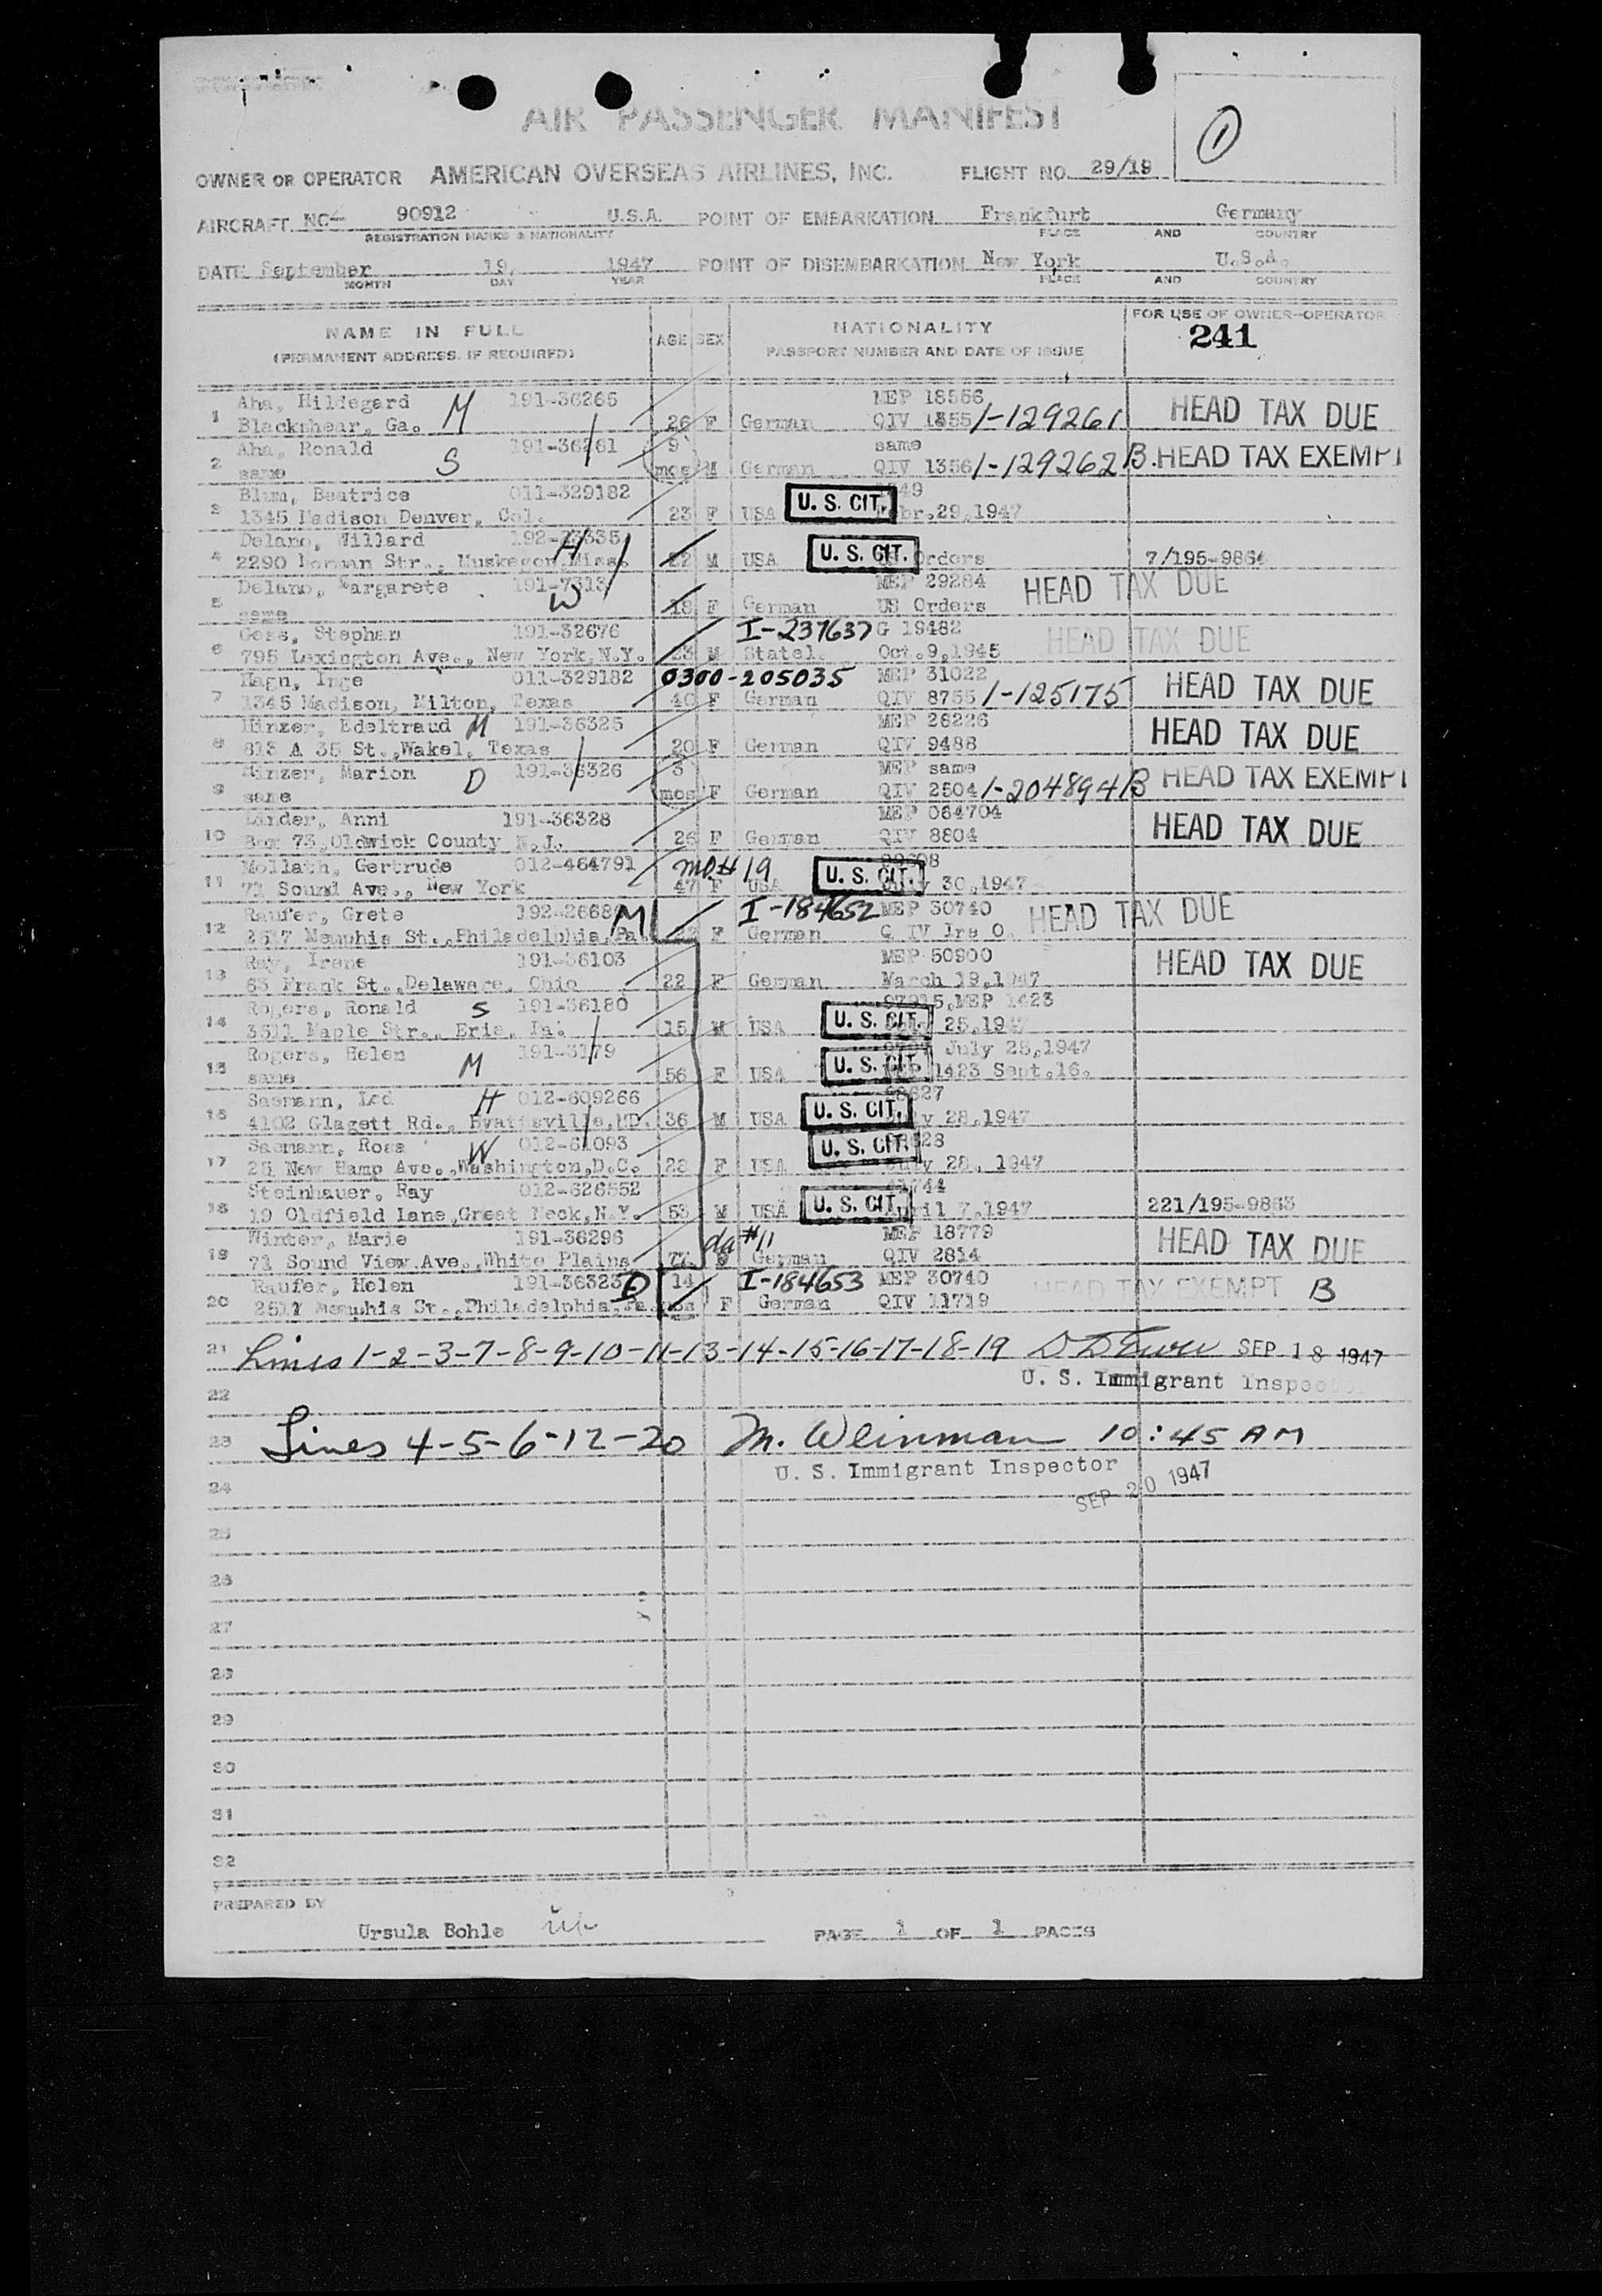 AIR PASSENGER MANIFEST
1
OWNER OR OPERATOR AMERICAN OVERSEAS AIRLINES, INC. FLIGHT NO. 29/19
AIRCRAFT NC- 90912 U.S.A. POINT OF EMBARKATION Frankfurt Germany
REGISTRATION MARKS & NATIONALITY PLACE AND COUNTRY
DATE September 19, 1947 POINT OF DISEMBARKATION New York U.S.A.
MONTH DAY YEAR PLACE AND COUNTRY
NAME IN FULL AGE SEX NATIONALITY FOR USE OF OWNER-OPERATOR
(PERMANENT ADDRESS, IF REQUIRED) PASSPORT NUMBER AND DATE OF ISSUE 241
Aha, Hildegard M 191-36265 MEP 18556
1 Blackshear, Ga. 26 F German QIV 1355 1-129261 HEAD TAX DUE
Aha, Ronald S 191-36261 9 same
2 same mos M German QIV 1356 1-129262 B. HEAD TAX EXEMPT
Blum, Beatrice 011-329182
3 1345 Madison Denver, Col. 23 F USA U. S. CIT. 29,1947
Delano, Willard H
4 2290 Norman Str., Muskegon, Miss. 22 M USA U. S. CIT. Orders 7/195-986
Delano, Margarete W 191-7313 MEP 29284 HEAD TAX DUE
5 same 18 F German US Orders
Gess, Stephan 191-32676 I-237637 G 19482
6 795 Lexington Ave., New York, N.Y. 23 M Statel. Oct.9,1945 HEAD TAX DUE
Hagn, Inge 011-329182 0300-205035 MEP 31022
7 1345 Madison, Milton, Texas 40 F German QIV 8755 1-125175 HEAD TAX DUE
Hinzer, Edeltraud M 191-36325 MEP 26226
8 813 A 35 St., Wakel, Texas 20 F German QIV 9488 HEAD TAX DUE
Hinzer, Marion D 191-36326 3 MEP same
9 same mos F German QIV 2504 1-204894 B HEAD TAX EXEMPT
Linder, Anni 191-36328 MEP 064704
10 Box 73, Oldwick County N.J. 26 F German QIV 8804 HEAD TAX DUE
Mollath, Gertrude 012-464791 MO.#19
11 71 Sound Ave., New York 47 F USA U. S. CIT. 30,1947
Raufer, Grete M I-184652 MEP 30740 HEAD TAX DUE
12 2517 Memphis St., Philadelphia, Pa. 22 F German Q IV
Ray, Irene 191-36103 MEP 50900
13 65 Frank St., Delaware, Ohio 22 F German March 19,1947 HEAD TAX DUE
Rogers, Ronald S 191-36180 MEP 1423
14 3511 Maple Str., Erie, Pa. 15 M USA U. S. CIT. 25,19
Rogers, Helen M 191-3179 July 25,1947
15 same 56 F USA U. S. CIT. 1423 Sept.16.
Sasmann, Led H 012-609266
16 4102 Glagett Rd., Hyattsville, MD. 36 M USA U. S. CIT. 28,1947
Sasmann, Rosa W 012-61093
17 25 New Hamp Ave., Washington, D.C. 22 F USA U. S. CIT. July 28, 1947
Steinhauer, Ray 012-626552
18 19 Oldfield Lane, Great Neck, N.Y. 53 M USA U. S. CIT. April 7,1947 221/195-9863
Winter, Marie 191-36296 da #11 MEP 18779
19 71 Sound View Ave., White Plains 77 German QIV 2814 HEAD TAX DUE
Raufer, Helen 191-36323 D 14 I-184653 MEP 30740 HEAD TAX EXEMPT B
20 2517 Memphis St., Philadelphia, Pa. mos F German QIV 11719
21 Lines 1-2-3-7-8-9-10-11-13-14-15-16-17-18-19 SEP 18 1947
U. S. Immigrant Inspector
22
23 Lines 4-5-6-12-20 M. Weinman 10:45 AM
U. S. Immigrant Inspector
24 SEP 20 1947
25
26
27
28
29
30
31
32
PREPARED BY
Ursula Bohle PAGE 1 OF 1 PAGES